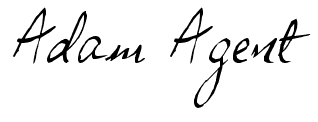 Adam Agent